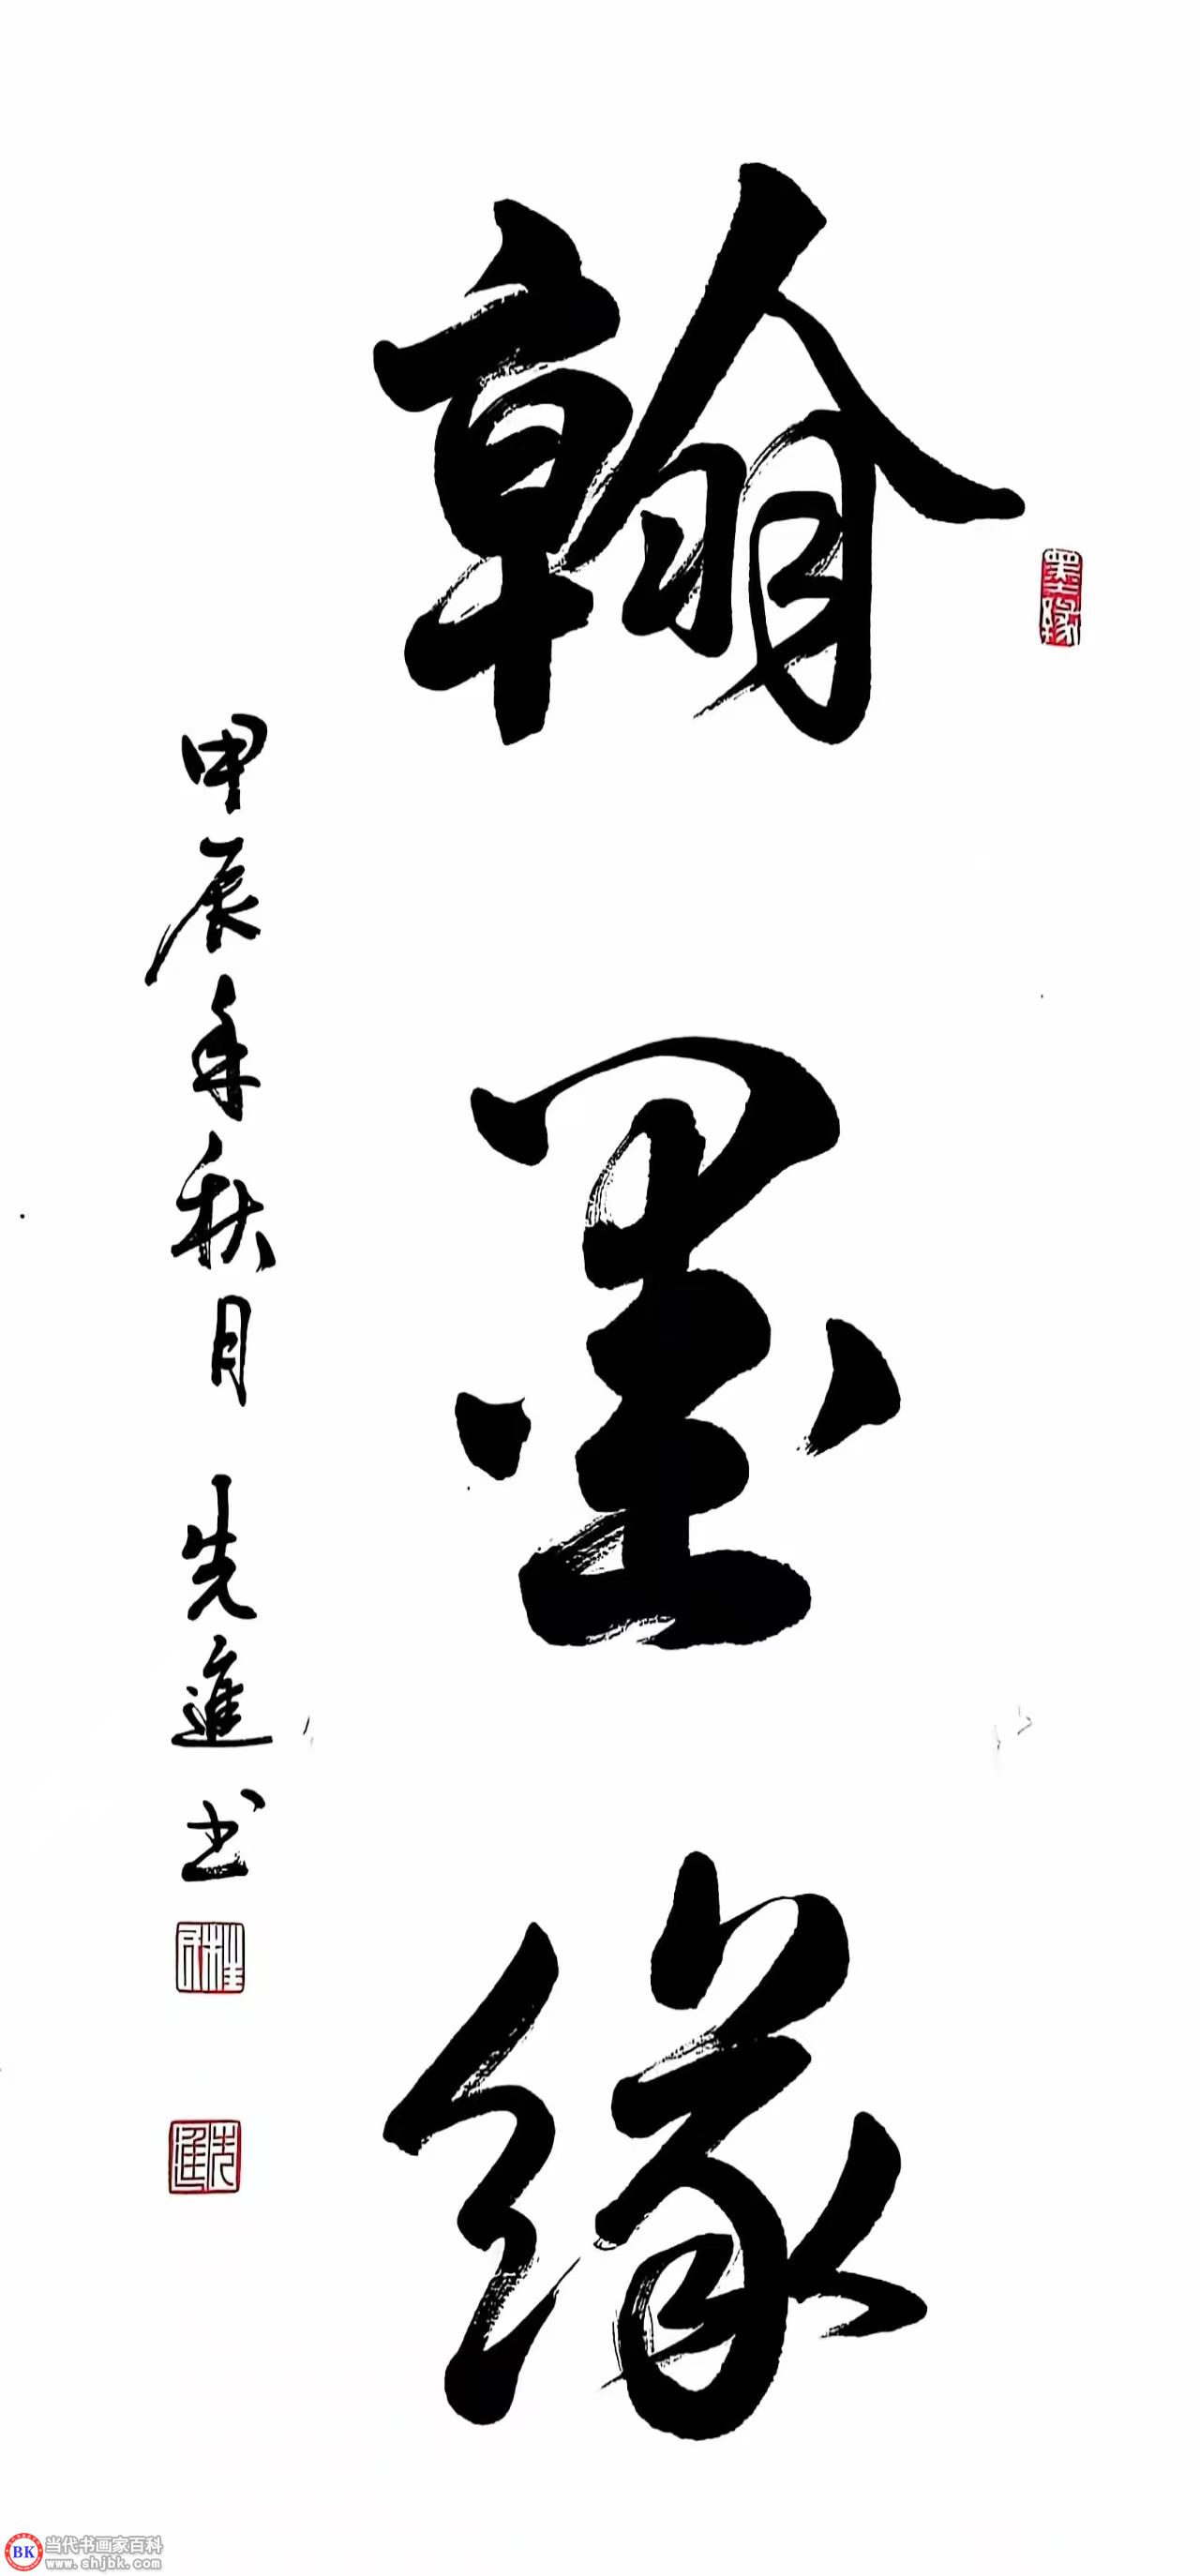 翰墨缘
墨缘
甲辰年秋月 先進书
先進
BK 当代书画家百科
www.shjbk.com